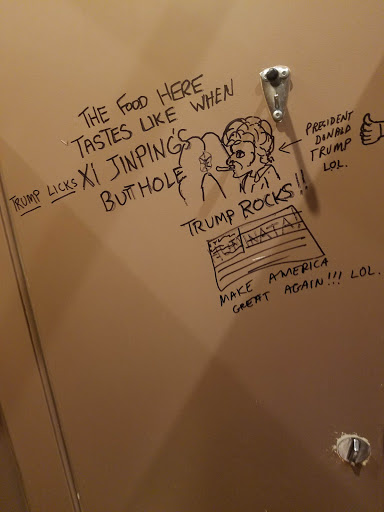 THE FOOD HERE
TASTES LIKE WHEN
TRUMP LICKS XI JINPING'S
BUTTHOLE
PRECIDENT
DONALD
TRUMP
LOL.
TRUMP ROCKS!!
MAKE AMERICA
GREAT AGAIN!!! LOL.